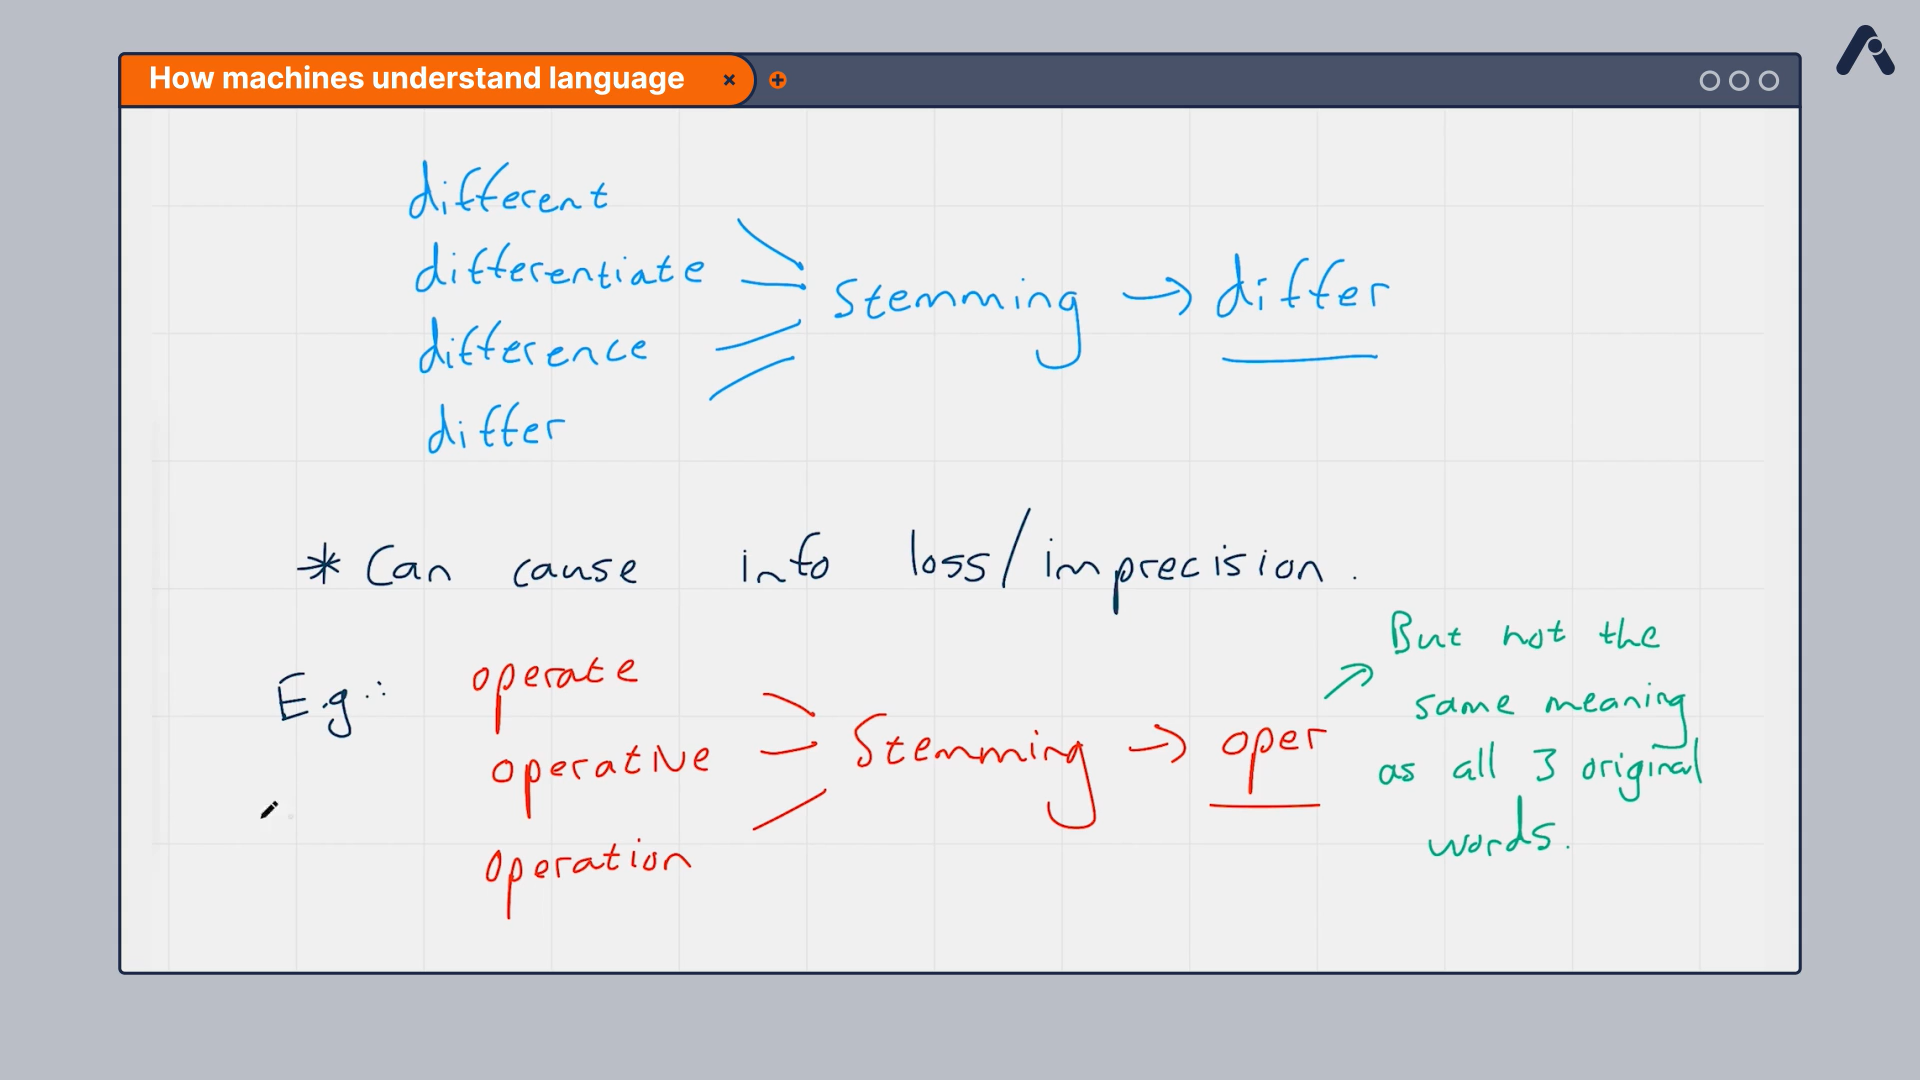 How machines understand language
different
differentiate
difference
differ
Stemming → differ
* Can cause info loss/imprecision.
E.g.:
operate
operative
operation
Stemming → oper
But not the
same meaning
as all 3 original
words.